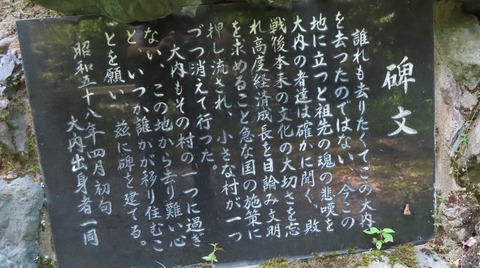 碑文
誰れも去りたくてこの大内
を去ったのではない、今この
地に立つと祖先の魂の悲嘆を
大内の者達は確かに聞く、敗
戦後本来の文化の大切さを忘
れ高度経済成長を目論み文明
を求めること急な国の施策に
押し流され、小さな村が一つ
づつ消えて行った。
大内もその村の一つに過ぎ
ない、この地から去り難い心
と、いつか誰かが移り住むこ
とを願い、茲に碑を建てる。
昭和五十八年四月初旬
大内出身者一同